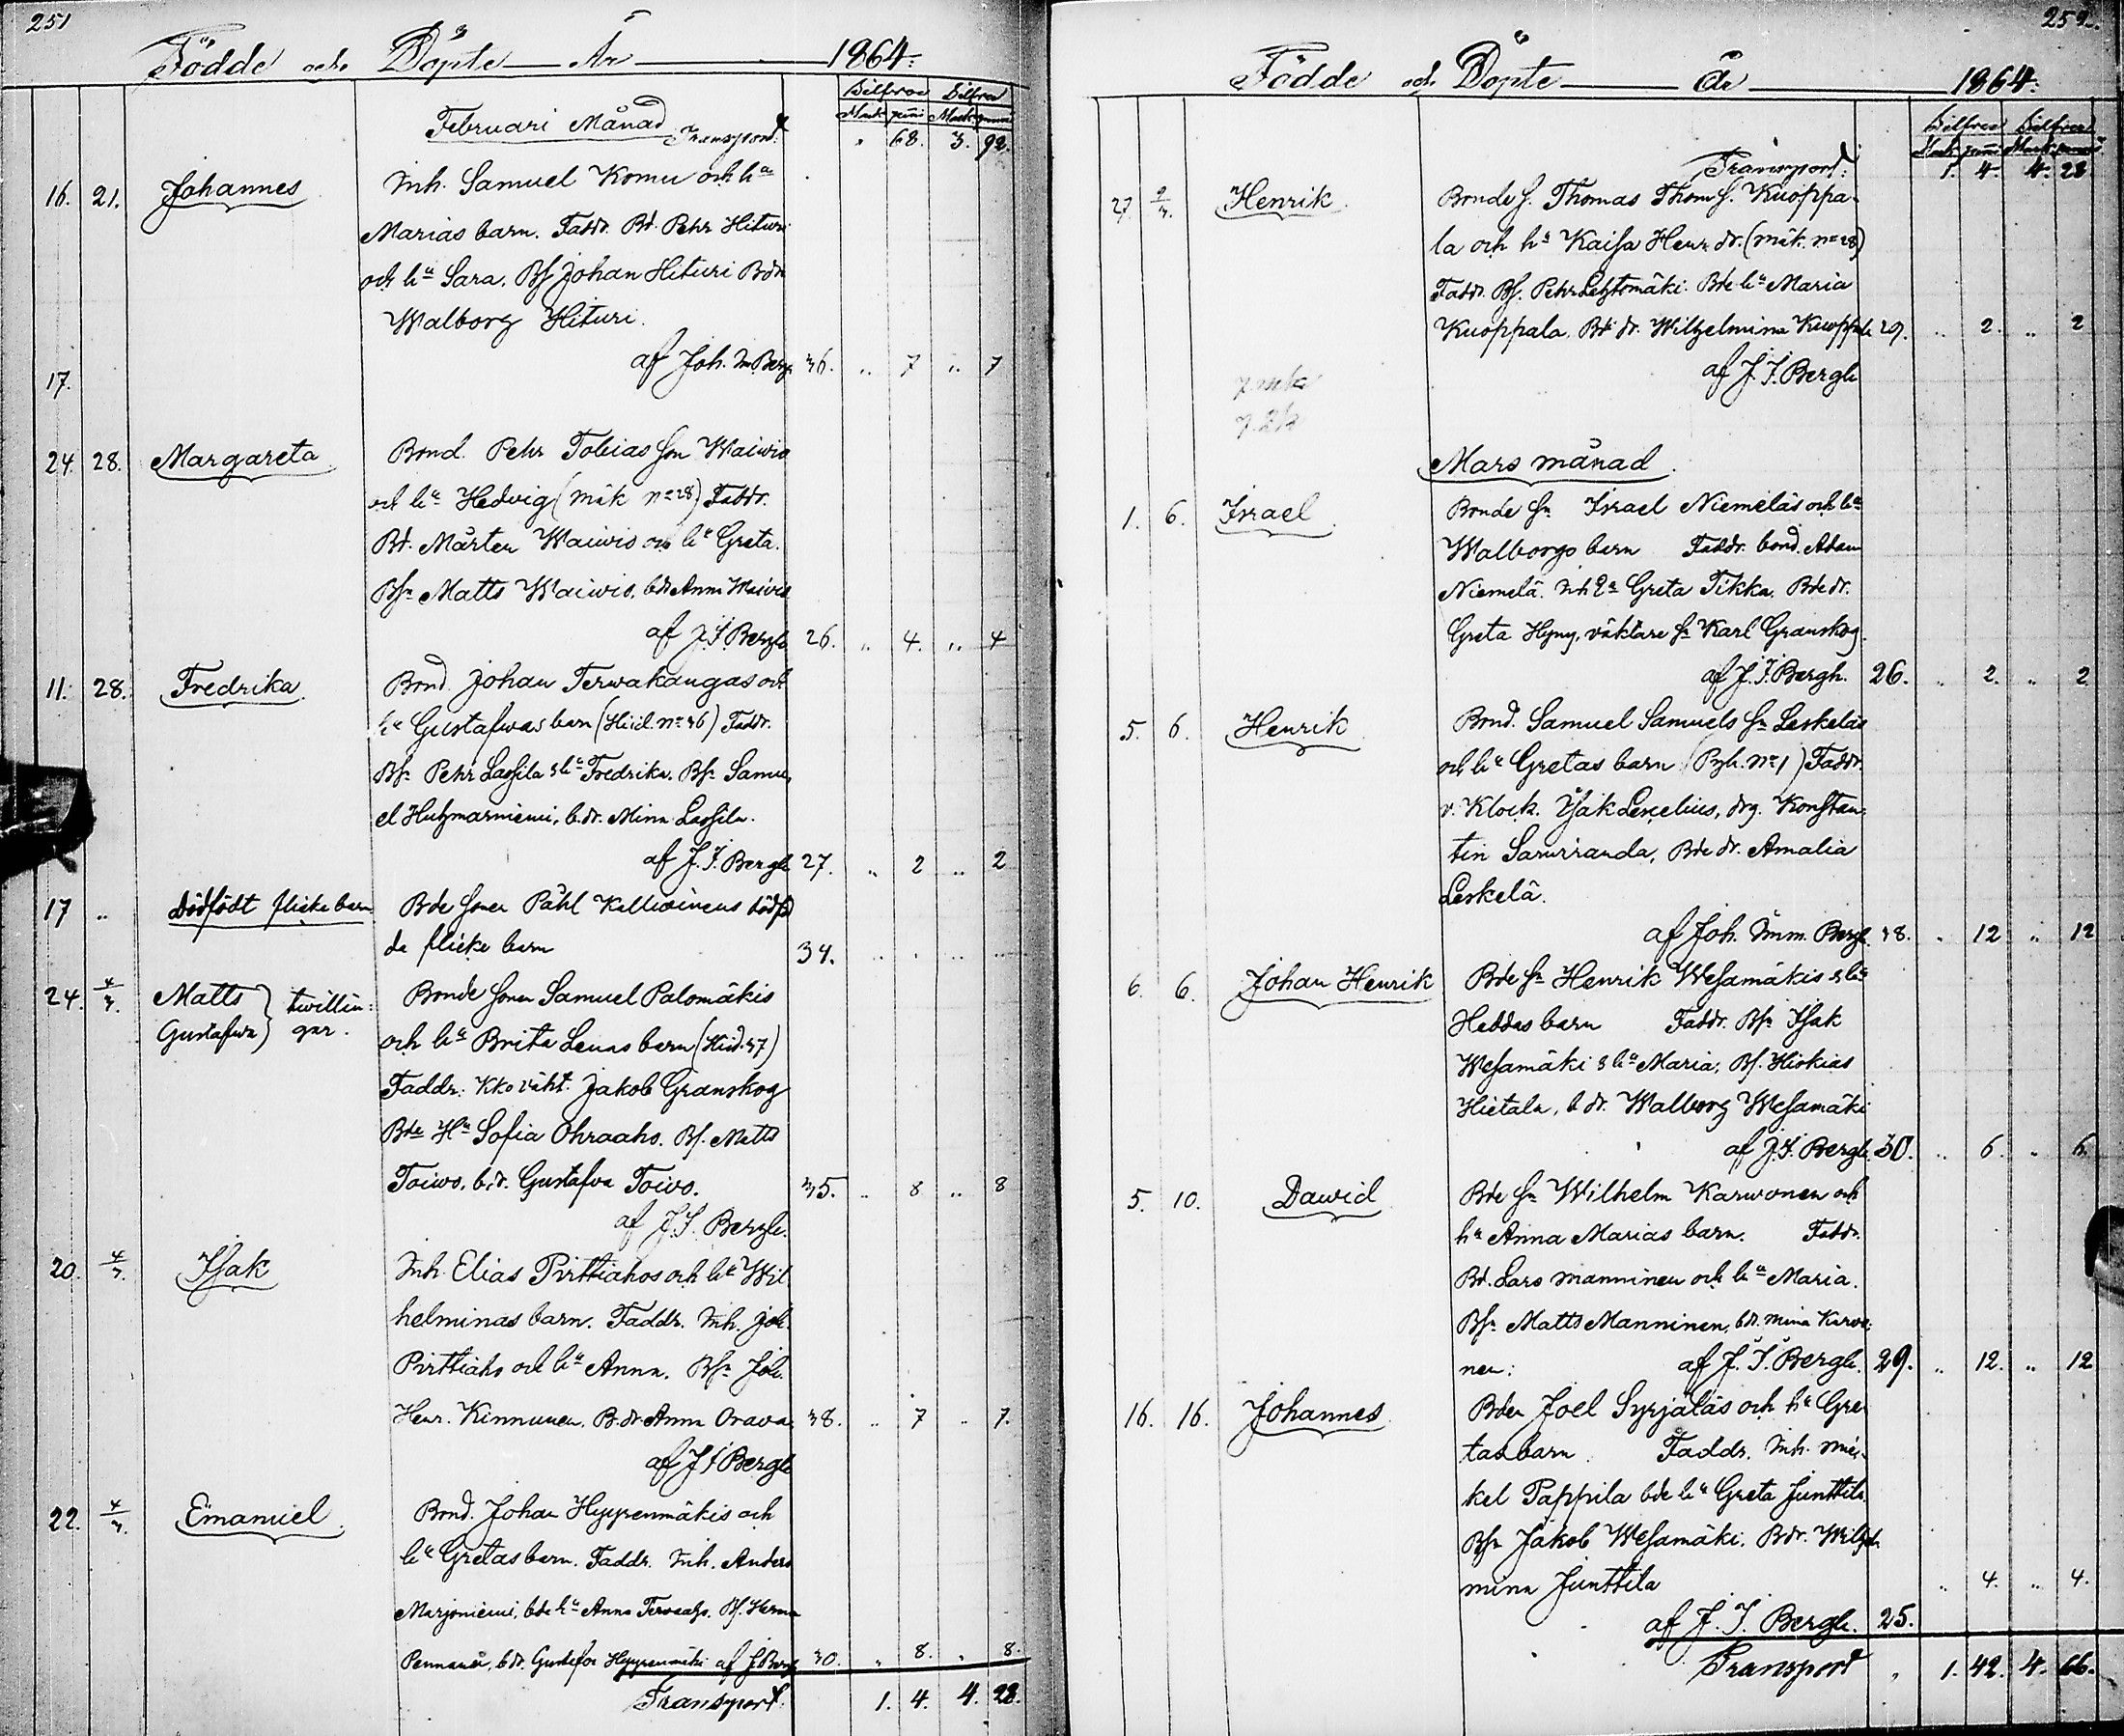 251
Födde och Döpte År 1864.
Silfver Silfver
Mark penni Mark penni
Februari Månad Transport: " 68. 3. 92.
16. 21. Johannes Inh. Samuel Komu och hu
Marias barn. Faddr. Bd. Pehr Hituri
och hu Sara, Bs. Johan Hituri Bdr
Walborg Hituri.
af Joh. Im Bergh 36. " 7 " 7
17.
24. 28. Margareta Bond. Pehr Tobias son Waiwio
och hu Hedvig (mäk no 28) Faddr.
Bd. Mårten Waiwio och hu Greta.
Bsn Matts Waiwio, bdr Anna Waiwio
af J. I. Bergh 26. " 4. " 4
11. 28. Fredrika Bond. Johan Terwakangas och
hu Gustafwas barn (Hiid. no 36) Faddr.
Bsn Pehr Lassila & hu Fredrika. Bsn Samu
el Huhmarniemi, b. dr. Minna Lassila.
af J. I. Bergh 27. " 2 " 2
17 " Dödfödt flicke barn Bde sonen Påhl Kelloinens dödföd
da flicke barn 34.
24. 4/3. Matts twillin: Bonde sonen Samuel Palomäkis
Gustafwa gar. och hu Brita Lenas barn (Hiid. 37)
Faddr. Kko väkt. Jakob Granskog
Bde Hu Sofia Ohraaho. Bs. Matts
Toiwo, b. dr. Gustafva Toivo. 35. " 8 " 8
af J. I. Bergh.
20. 4/3. Isak Inh. Elias Pirttiahos och hu Wil
helminas barn. Faddr. Inh. Joh.
Pirttiaho och hu Anna. Bsn Joh.
Henr. Kinnunen, B. dr Anna Orava 38. " 7 " 7.
af J I Bergh
22. 4/3. Emanuel Bond. Johan Hyyrenmäkis och
hu Gretas barn. Faddr. Inh. Anders
Marjoniemi, bde hu Anna Tervaaho. Bs. Herman
Pennanen, b dr. Gustafva Hyyrenmäki af J Bergh 30. " 8. " 8.
Transport. 1. 4. 4. 28.
252.
Födde och Döpte år 1864.
Silfver Silfver
Mark penni Mark penni
Transport: 1. 4. 4. 28
27 2/3. Henrik Bonde s. Thomas Thom s. Kuoppa-
la och hu Kaisa Henr dr. (mäk. no 28)
Faddr. Bs. Pehr Lehtomäki. Bde hu Maria
Kuoppala, Bd dr. Wilhelmina Kuoppala 29. " 2. " 2
af J. I. Bergh
Mars månad.
1. 6. Israel Bonde sn Israel Niemeläs och hu
Walborgs barn Faddr. bond. Adam
Niemelä. Inh Ea Greta Tikka. Bde dr.
Greta Hyny, väktare sn Karl Granskog.
af J. I. Bergh. 26. " 2. " 2
5. 6. Henrik Bond. Samuel Samuels sn Leskeläs
och hu Gretas barn (Pyh. no 1) Faddr.
v. Klock. Isak Lescelius, drg. Konstan-
tin Sarviranda, Bde dr. Amalia
Leskelä.
af Joh. Imm. Bergh 38. " 12 " 12
6. 6. Johan Henrik Bde sn Henrik Wesamäkis & hu
Heddas barn Faddr. Bsn Isak
Wesamäki & hu Maria, Bs. Hiskias
Hietala, b dr. Walborg Wesamäki
af J. I. Bergh. 30. " 6. " 6.
5. 10. Dawid Bde sn Wilhelm Karwonen och
hu Anna Marias barn. Faddr.
Bd. Lars Manninen och hu Maria.
Bsn Matts Manninen, bdr. Mina Karvo:
nen: af J. I. Bergh. 29. " 12. " 12
16. 16. Johannes Bden Joel Syrjäläs och hu Gre
tas barn. Faddr. Inh. Mi-
kel Pappila bde hu Greta Junttila.
Bsn Jakob Wesamäki. Bdr. Wilhel
mina Junttila " 4. " 4.
af J. I. Bergh. 25.
Transport " 1. 42. 4. 66.